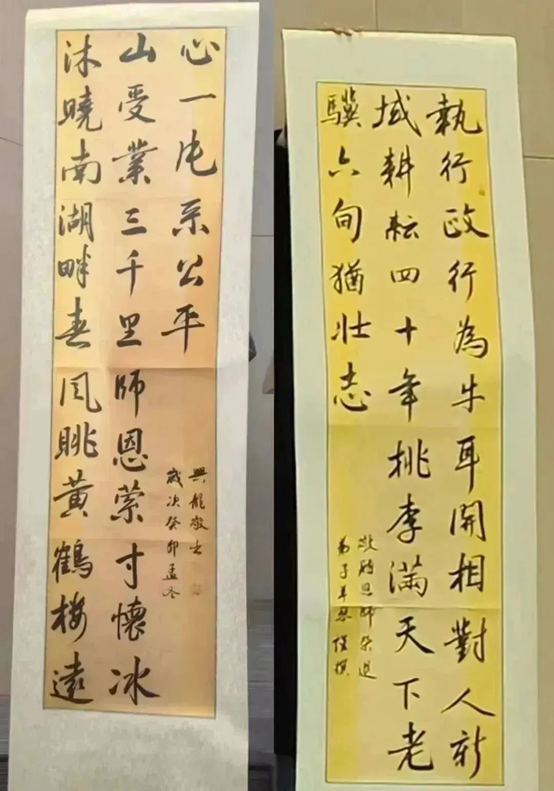 執行政行為牛耳開相對人新
域耕耘四十年桃李滿天下老
驥六旬猶壯志
恩師榮退
弟子 撰
沐曉南湖畔春風眺黃鶴樓遠
山受業三千里師恩縈寸懷冰
心一片系公平
歲次癸卯孟冬
興龍敬書